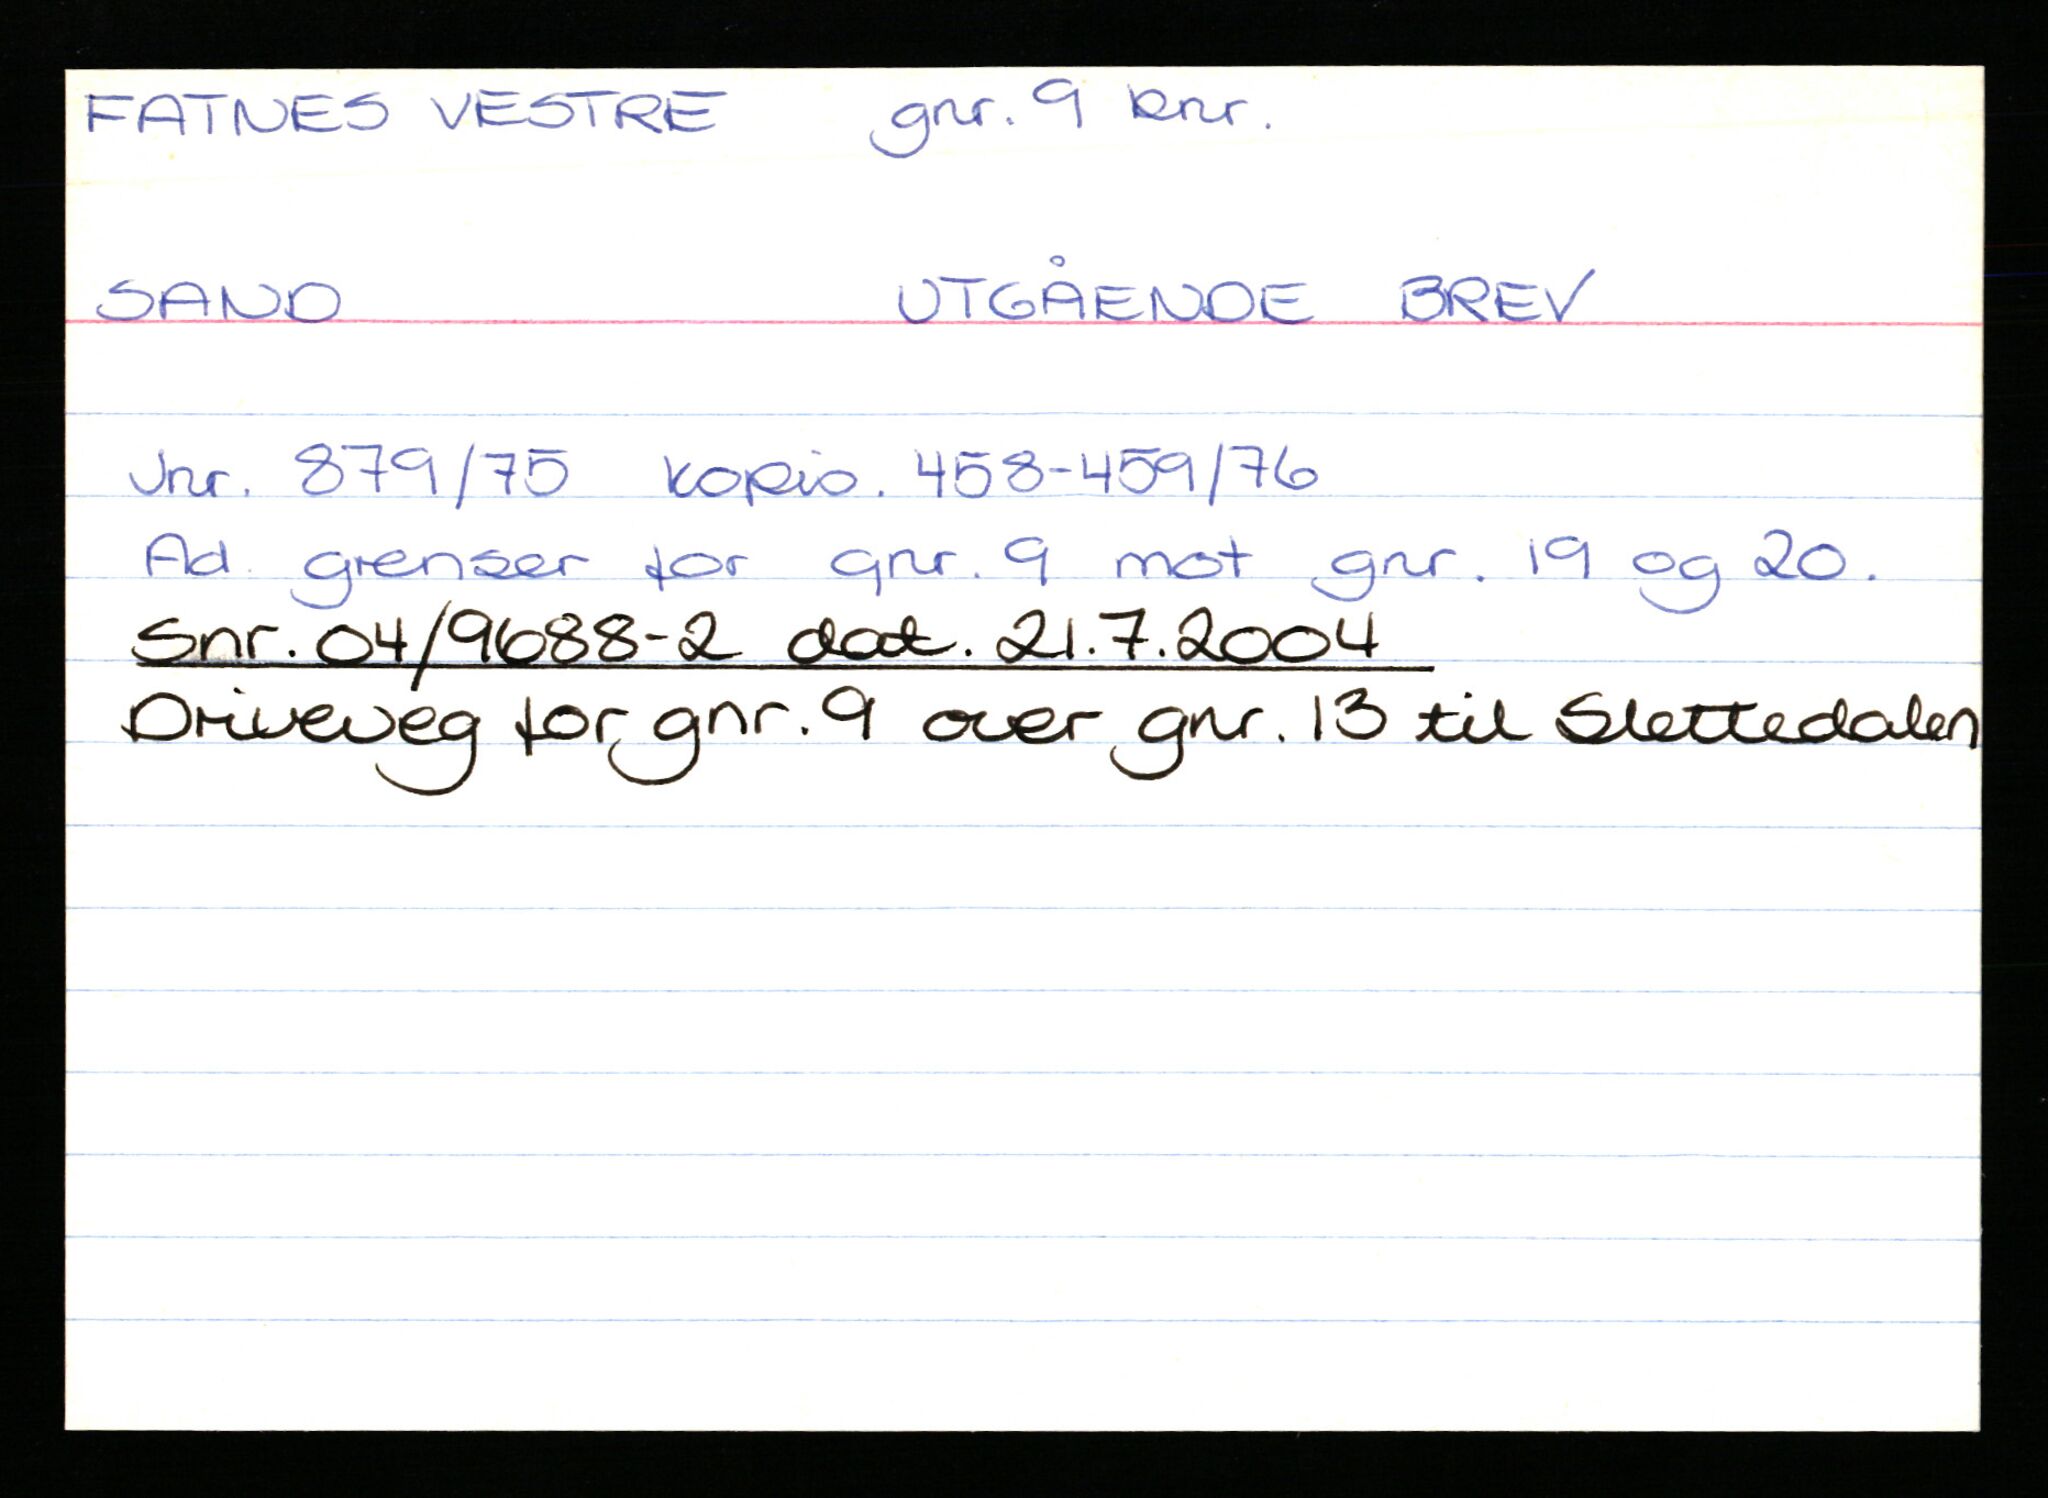 FATNES VESTRE gnr. 9 knr.
SAND UTGÅENDE BREV
Jnr. 879/75 kopib. 458-459/76
Ad. grenser for gnr. 9 mot gnr. 19 og 20.
Snr. 04/9688-2 dat. 21.7.2004
Driveveg for gnr. 9 over gnr. 13 til Slettedalen